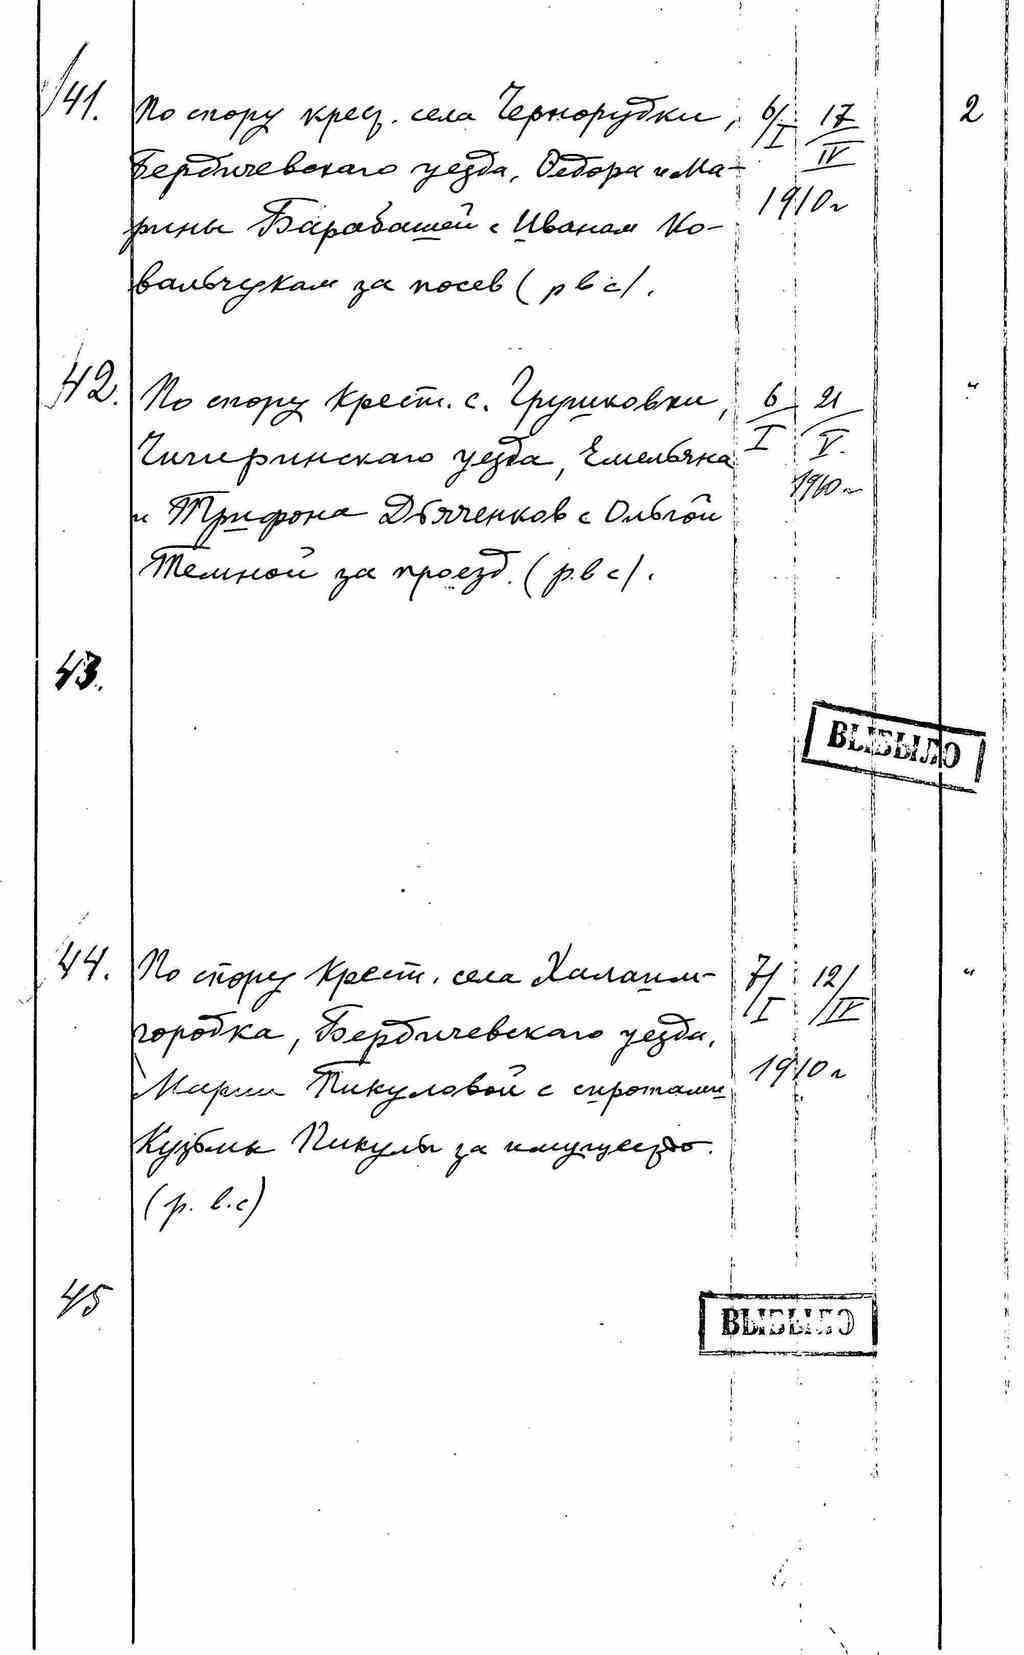 41. По спору крест. села Чернорудки, 6/I 17/IV 2
Бердичевскаго уезда, Федора и Ма-
рины Барабашей с Иваном Ко- 1910 г
вальчукам за посев (р в с).
42. По спору крест. с. Грушковки, 6/I 21/V. "
Чигиринскаго уезда, Емельяна
и Трифона Дьяченков с Ольгой 1910 г
Темной за проезд. (р. в с).
43.
ВЫБЫЛО
44. По спору крест. села Халаим- 7/I 12/IV "
городка, Бердичевскаго уезда,
Марии Пикуловой с сиротами 1910 г
Кузьмы Пикулы за имущество.
(р. в. с)
45
ВЫБЫЛО